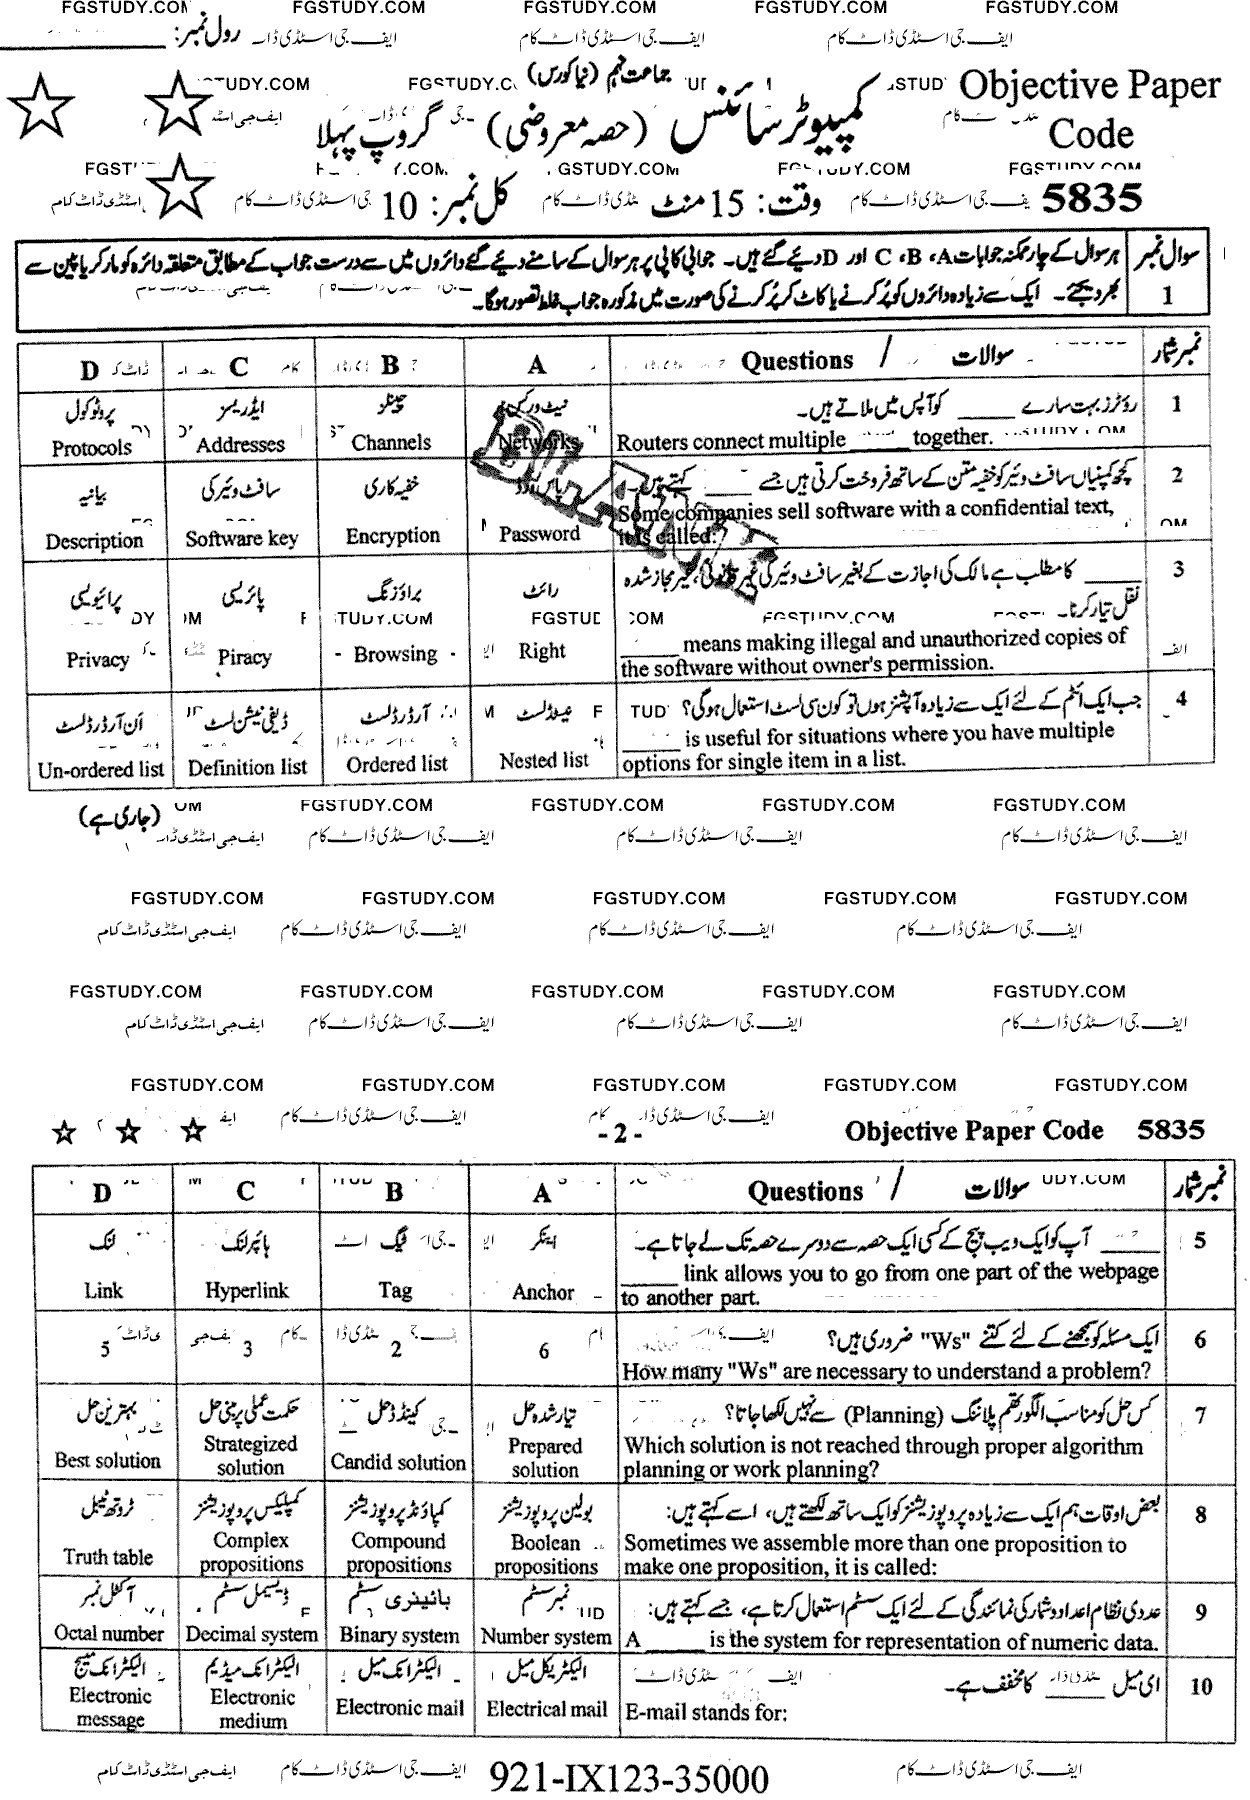 FGSTUDY.COM FGSTUDY.COM FGSTUDY.COM FGSTUDY.COM
رول نمبر:
جماعت نہم (نیا کورس)
Objective Paper
Code
5835
کمپیوٹر سائنس (حصہ معروضی) گروپ پہلا
وقت: 15 منٹ کل نمبر: 10
سوال نمبر 1
ہر سوال کے چار ممکنہ جوابات A، B، C اور D دیئے گئے ہیں۔ جوابی کاپی پر ہر سوال کے سامنے دیئے گئے دائروں میں سے درست جواب کے مطابق متعلقہ دائرہ کو مارکر یا پین سے
بھر دیجئے۔ ایک سے زیادہ دائروں کو پُر کرنے یا کاٹ کر پُر کرنے کی صورت میں مذکورہ جواب غلط تصور ہوگا۔
نمبر شمار سوالات / Questions A B C D
1 روٹرز بہت سارے ____ کو آپس میں ملاتے ہیں۔
Routers connect multiple ____ together.
نیٹ ورکس چینلز ایڈریسز پروٹوکول
Networks Channels Addresses Protocols
2 کچھ کمپنیاں سافٹ وئیر کو خفیہ متن کے ساتھ فروخت کرتی ہیں جسے ____ کہتے ہیں۔
Some companies sell software with a confidential text,
it is called:
پاس ورڈ خفیہ کاری سافٹ وئیر کی بیانیہ
Password Encryption Software key Description
3 ____ کا مطلب ہے مالک کی اجازت کے بغیر سافٹ وئیر کی غیر قانونی، غیر مجاز شدہ
نقل تیار کرنا۔
____ means making illegal and unauthorized copies of
the software without owner's permission.
رائٹ براؤزنگ پائریسی پرائیویسی
Right Browsing Piracy Privacy
4 جب ایک آئٹم کے لئے ایک سے زیادہ آپشنز ہوں تو کون سی لسٹ استعمال ہوگی؟
____ is useful for situations where you have multiple
options for single item in a list.
نیسٹڈ لسٹ آرڈرڈ لسٹ ڈیفی نیشن لسٹ اَن آرڈرڈ لسٹ
Nested list Ordered list Definition list Un-ordered list
(جاری ہے)
FGSTUDY.COM FGSTUDY.COM FGSTUDY.COM FGSTUDY.COM
ایف جی اسٹڈی ڈاٹ کام ایف جی اسٹڈی ڈاٹ کام ایف جی اسٹڈی ڈاٹ کام
FGSTUDY.COM FGSTUDY.COM FGSTUDY.COM FGSTUDY.COM FGSTUDY.COM
ایف جی اسٹڈی ڈاٹ کام ایف جی اسٹڈی ڈاٹ کام ایف جی اسٹڈی ڈاٹ کام ایف جی اسٹڈی ڈاٹ کام
FGSTUDY.COM FGSTUDY.COM FGSTUDY.COM FGSTUDY.COM FGSTUDY.COM
ایف جی اسٹڈی ڈاٹ کام ایف جی اسٹڈی ڈاٹ کام ایف جی اسٹڈی ڈاٹ کام ایف جی اسٹڈی ڈاٹ کام
FGSTUDY.COM FGSTUDY.COM FGSTUDY.COM FGSTUDY.COM FGSTUDY.COM
-2- Objective Paper Code 5835
نمبر شمار سوالات / Questions A B C D
5 ____ آپ کو ایک ویب پیج کے کسی ایک حصہ سے دوسرے حصہ تک لے جاتا ہے۔
____ link allows you to go from one part of the webpage
to another part.
اینکر ٹیگ ہائپر لنک لنک
Anchor Tag Hyperlink Link
6 ایک مسئلہ کو سمجھنے کے لئے کتنے "Ws" ضروری ہیں؟
How many "Ws" are necessary to understand a problem?
6 2 3 5
7 کس حل کو مناسب الگورتھم پلاننگ (Planning) سے نہیں لکھا جاتا؟
Which solution is not reached through proper algorithm
planning or work planning?
تیار شدہ حل کینڈڈ حل حکمت عملی پر مبنی حل بہترین حل
Prepared solution Candid solution Strategized solution Best solution
8 بعض اوقات ہم ایک سے زیادہ پروپوزیشنز کو ایک ساتھ لکھتے ہیں، اسے کہتے ہیں:
Sometimes we assemble more than one proposition to
make one proposition, it is called:
بولین پروپوزیشنز کمپاؤنڈ پروپوزیشنز کمپلیکس پروپوزیشنز ٹروتھ ٹیبل
Boolean propositions Compound propositions Complex propositions Truth table
9 عددی نظام اعداد و شمار کی نمائندگی کے لئے ایک سسٹم استعمال کرتا ہے، جسے کہتے ہیں:
A ____ is the system for representation of numeric data.
نمبر سسٹم بائینری سسٹم ڈیسیمل سسٹم آکٹل نمبر
Number system Binary system Decimal system Octal number
10 ای میل ____ کا مخفف ہے۔
E-mail stands for:
الیکٹریکل میل الیکٹرانک میل الیکٹرانک میڈیم الیکٹرانک میسج
Electrical mail Electronic mail Electronic medium Electronic message
921-IX123-35000
ایف جی اسٹڈی ڈاٹ کام ایف جی اسٹڈی ڈاٹ کام ایف جی اسٹڈی ڈاٹ کام